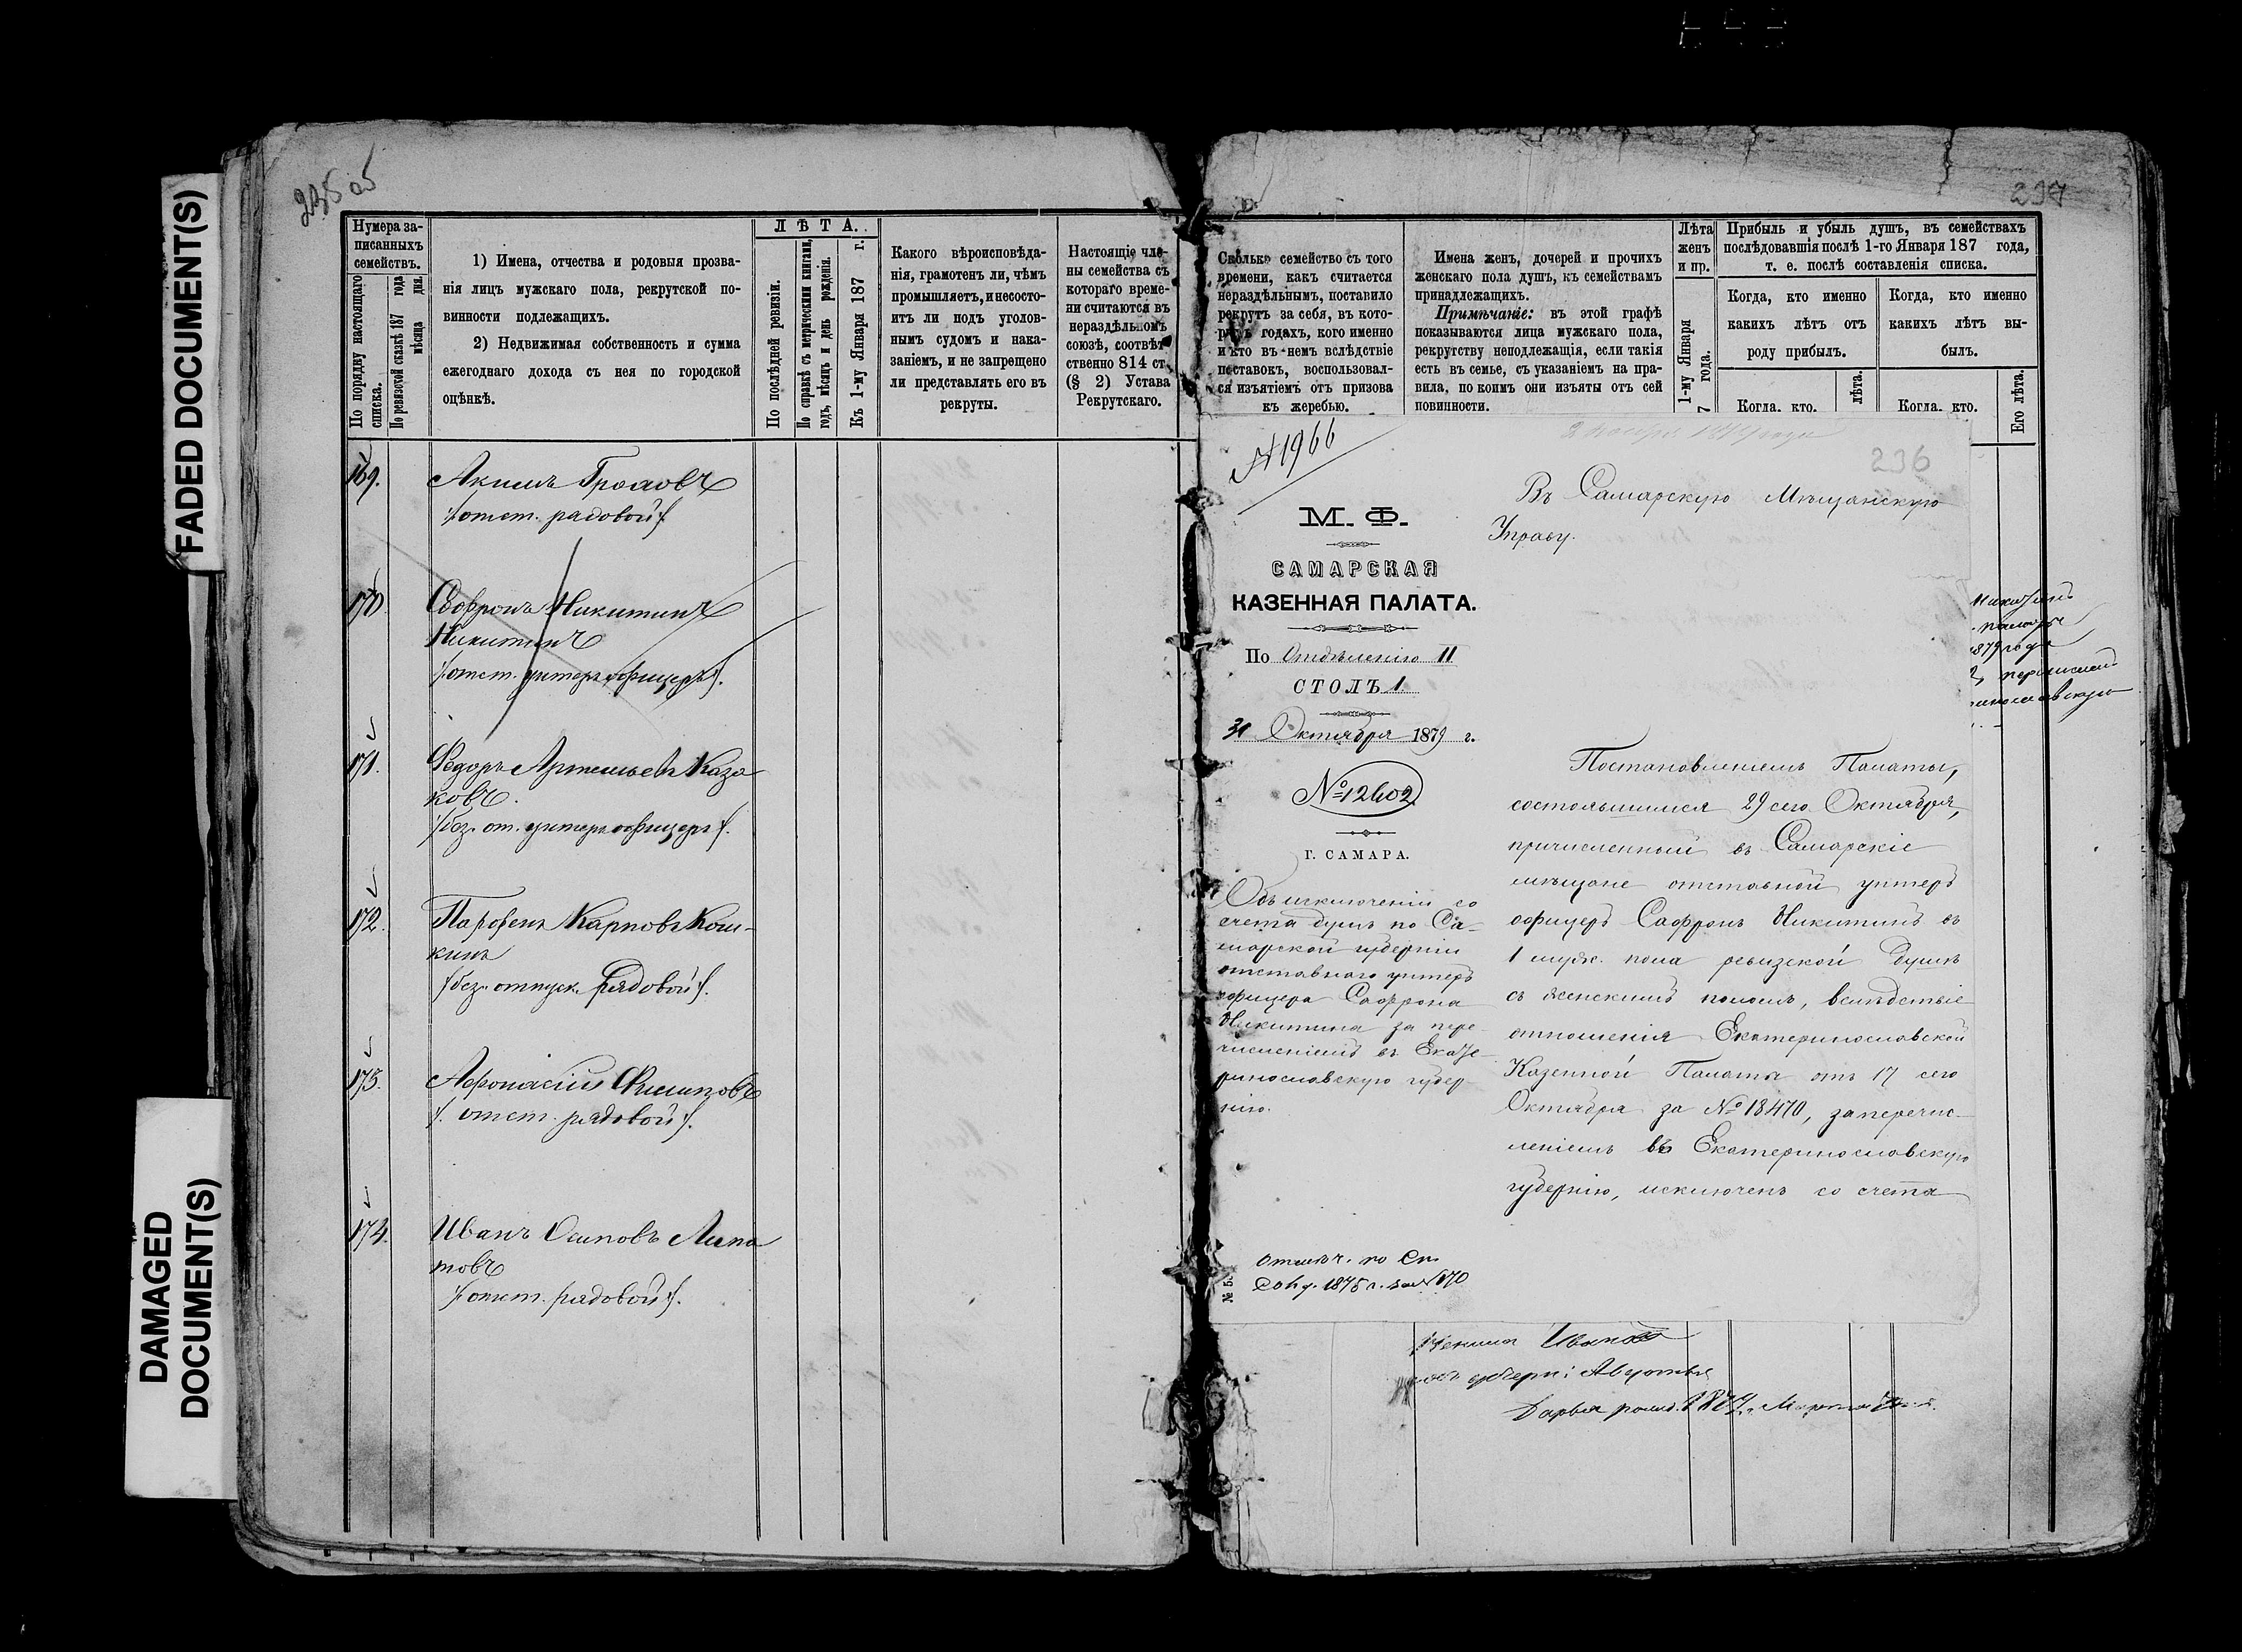 FADED DOCUMENT(S)
DAMAGED
DOCUMENT(S)
Нумера за-
писанныхъ
семействъ.
По порядку настоящаго
списка.
По ревизской сказкѣ 187 года
мѣсяца дня.
1) Имена, отчества и родовыя прозва-
нія лицъ мужскаго пола, рекрутской по-
винности подлежащихъ.
2) Недвижимая собственность и сумма
ежегоднаго дохода съ нея по городской
оцѣнкѣ.
ЛѢТА.
По послѣдней ревизіи.
По справкѣ съ метрическими книгами,
годъ, мѣсяцъ и день рожденія.
Къ 1-му Января 187 г.
Какого вѣроисповѣда-
нія, грамотенъ ли, чѣмъ
промышляетъ, и несосто-
итъ ли подъ уголов-
нымъ судомъ и нака-
заніемъ, и не запрещено
ли представлять его въ
рекруты.
Настоящіе чле-
ны семейства съ
котораго време-
ни считаются въ
нераздѣльномъ
союзѣ, соотвѣт-
ственно 814 ст.
(§ 2) Устава
Рекрутскаго.
169.
Акимъ Громовъ
/: отст. рядовой :/.
170.
Софронъ Никитинъ
Никитинъ
/: отст. унтеръ офицеръ :/.
171.
Федоръ Артемьевъ Каза
ковъ.
/: без. от. унтеръ офицеръ :/.
172.
Парфенъ Карповъ Кош-
кинъ
/: без. отпуск. рядовой :/.
173.
Афонасій Филиповъ
/: отст. рядовой :/.
174.
Иванъ Осиповъ Липа
товъ
/: отст. рядовой :/.
237
Сколько семейство съ того
времени, какъ считается
нераздѣльнымъ, поставило
рекрутъ за себя, въ кото-
рыхъ годахъ, кого именно
и кто въ немъ вслѣдствіе
поставокъ, воспользовал-
ся изъятіемъ отъ призова
къ жеребью.
Имена женъ, дочерей и прочихъ
женскаго пола душъ, къ семействамъ
принадлежащихъ.
Примѣчаніе: въ этой графѣ
показываются лица мужскаго пола,
рекрутству неподлежащія, если такія
есть въ семье, съ указаніемъ на пра-
вила, по коимъ они изъяты отъ сей
повинности.
Лѣта
женъ
и пр.
1-му Января
7 года.
Прибыль и убыль душъ, въ семействахъ
послѣдовавшія послѣ 1-го Января 187 года,
т. е. послѣ составленія списка.
Когда, кто именно
какихъ лѣтъ отъ
роду прибылъ.
Когда, кто именно
какихъ лѣтъ вы-
былъ.
Когда. кто.
лѣта.
Когда. кто.
Его лѣта.
№1966
236
М. Ф.
САМАРСКАЯ
КАЗЕННАЯ ПАЛАТА.
По Отдѣленію II
СТОЛЪ 1.
31 Октября 1879 г.
№ 12602
Г. САМАРА.
Объ исключеніи со
счета душъ по Са-
марской губерніи
отставнаго унтеръ
офицера Софрона
Никитина за пере-
численіемъ въ Екате-
ринославскую губер-
нію.
отмѣч. по Сп.
1875 г. за №170
№ 5.
Въ Самарскую Мѣщанскую
Управу.
Постановленіемъ Палаты,
состоявшимся 29 сего Октября,
причисленный въ Самарскіе
мѣщане отставной унтеръ
офицеръ Софронъ Никитинъ въ
1 муж. пола ревизской душѣ
съ женскимъ поломъ, вслѣдствіе
отношенія Екатеринославской
Казенной Палаты отъ 17 сего
Октября за № 18470, за перечис-
леніемъ въ Екатеринославскую
губернію, исключенъ со счета
Никитинъ
палаты
1879 года
перечисленъ
ринославскую
Ивана
Дарья